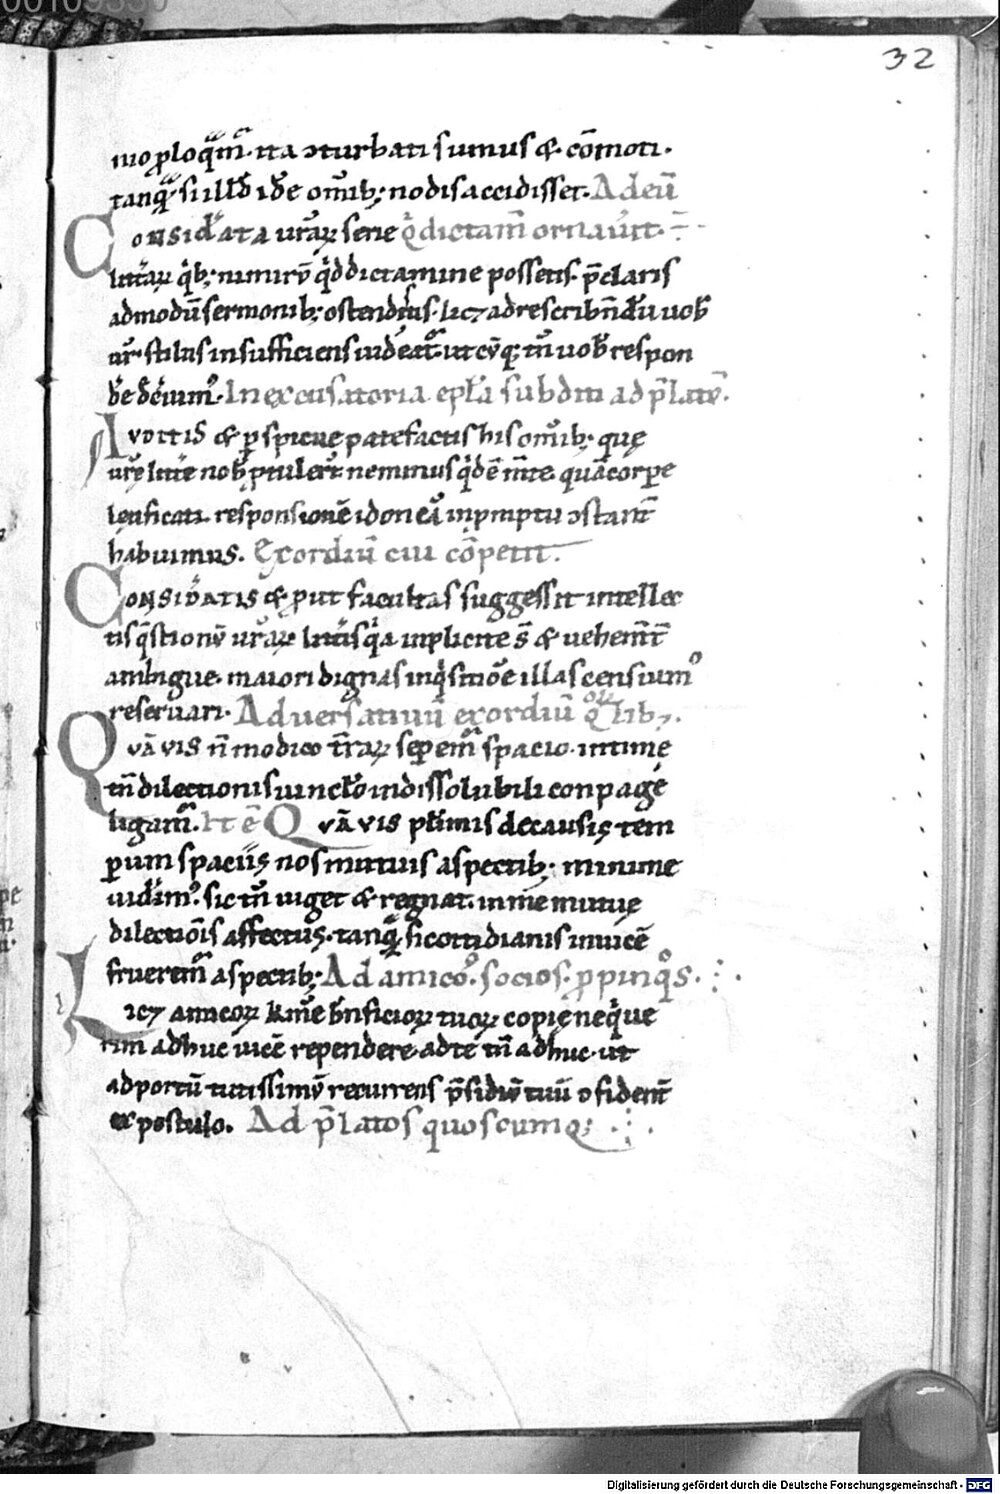 00109330
32
mo ꝓloq̄m̄. ita ɔturbati sumus &. cōmoti.
tanq̄ si illđ iđe om̄ib; nobis accidisset. Ad eū
Considata urāꝝ serie q̇ dictam̄ ornauit.
litāꝝ q̇b; nimirū q̇d dictamine possetis. p̄claris
admodū sermonib; ostenditis. licꝫ ad rescribn̄dū uob̄
nr̄ stilus insufficiens uideat᷑. utcūq; tm̄ uob̄ respon
đe đcium᷒. In excusatoria epl̄a subditi ad p̄latū.
Avditis & ꝑspicue patefactis his om̄ib; quę
urę litt̄e nob̄ ptuler̄t neminus q̇dē m̄te. quā corꝑe
lęificati. responsionē idoneā inpmptu ɔstant̄
habuimus. Exordiū cui cōpetit.
Considatis & ꝓut facultas suggessit intellec
tis q̄stionū urāꝝ litt̄is q̇a inplicite s̄ & uehem̄t̄
ambigue. maiori dignas inq̇sitiōe illas censuim᷒
reseruari. Aduersatiuū exordiū q̇ lib;.
Qvāvis n̄ modico t̄raꝝ seꝑem᷒ spacio. intimę
tn̄ dilectionis uincl̄o indissolubili conpage
ligam̄. Itē Qvāvis plīmis de causis tem
ꝑum spaciis nos mutuis aspectib; minime
uidim᷒. sic tn̄ uiget & regnat. in me mutuę
dilectiōis affectus. tanq̄ si cottidianis inuicē
fruerem̄ aspectib; Ad amico᷒. socios. ꝓpinq̊s.
Licꝫ amicoꝝ kīne bn̄ficioꝝ tuoꝝ copię neq̇ue
rim adhuc uicē rependere. ad te tn̄ adhuc. ut
ad portū tutissimū recurrens p̄sidiū tuū ɔfident̄
expostulo. Ad p̄latos quoscumq;
Digitalisierung gefördert durch die Deutsche Forschungsgemeinschaft - DFG